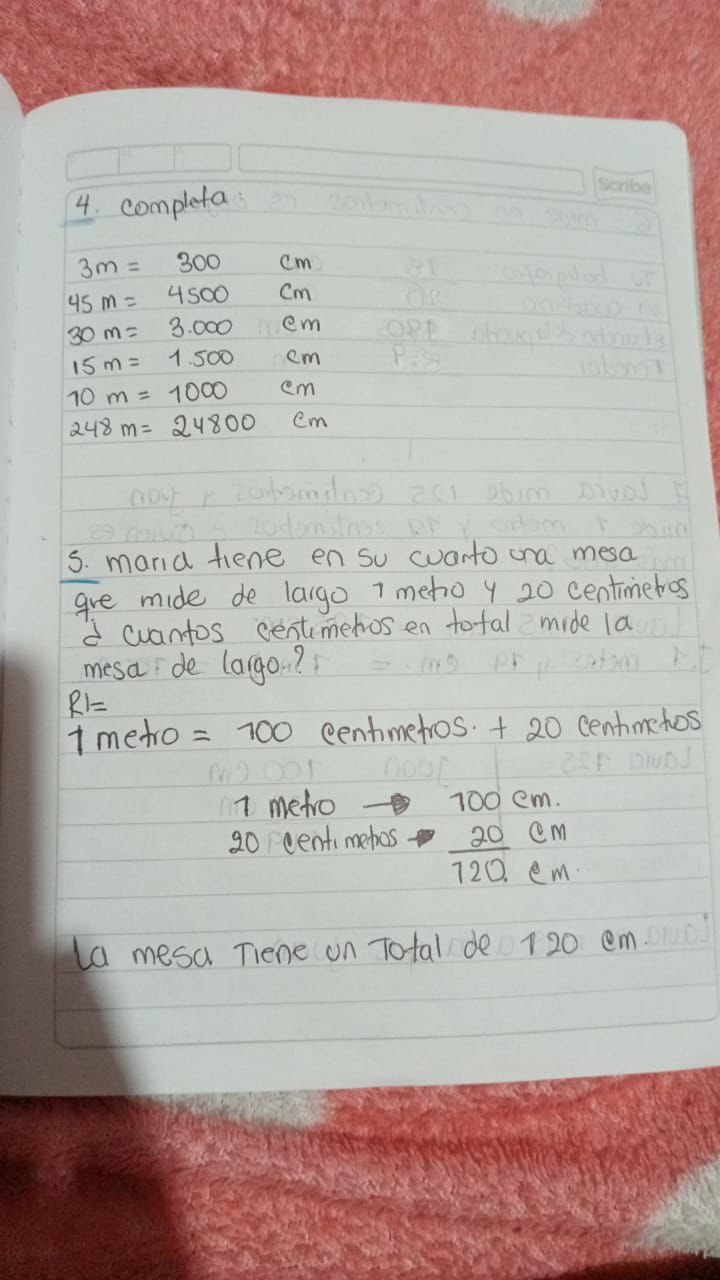 Scribe
4. completa.
3m = 300 cm
45 m = 4500 cm
30 m = 3.000 cm
15 m = 1.500 cm
10 m = 1000 cm
248 m = 24800 cm
5. maria tiene en su cuarto una mesa
que mide de largo 1 metro y 20 centimetros
¿ cuantos centimetros en total mide la
mesa de largo.?
R/=
1 metro = 100 centimetros. + 20 centimetros
1 metro → 100 cm.
20 centimetros → 20 cm
120. cm.
La mesa Tiene un Total de 120 cm.